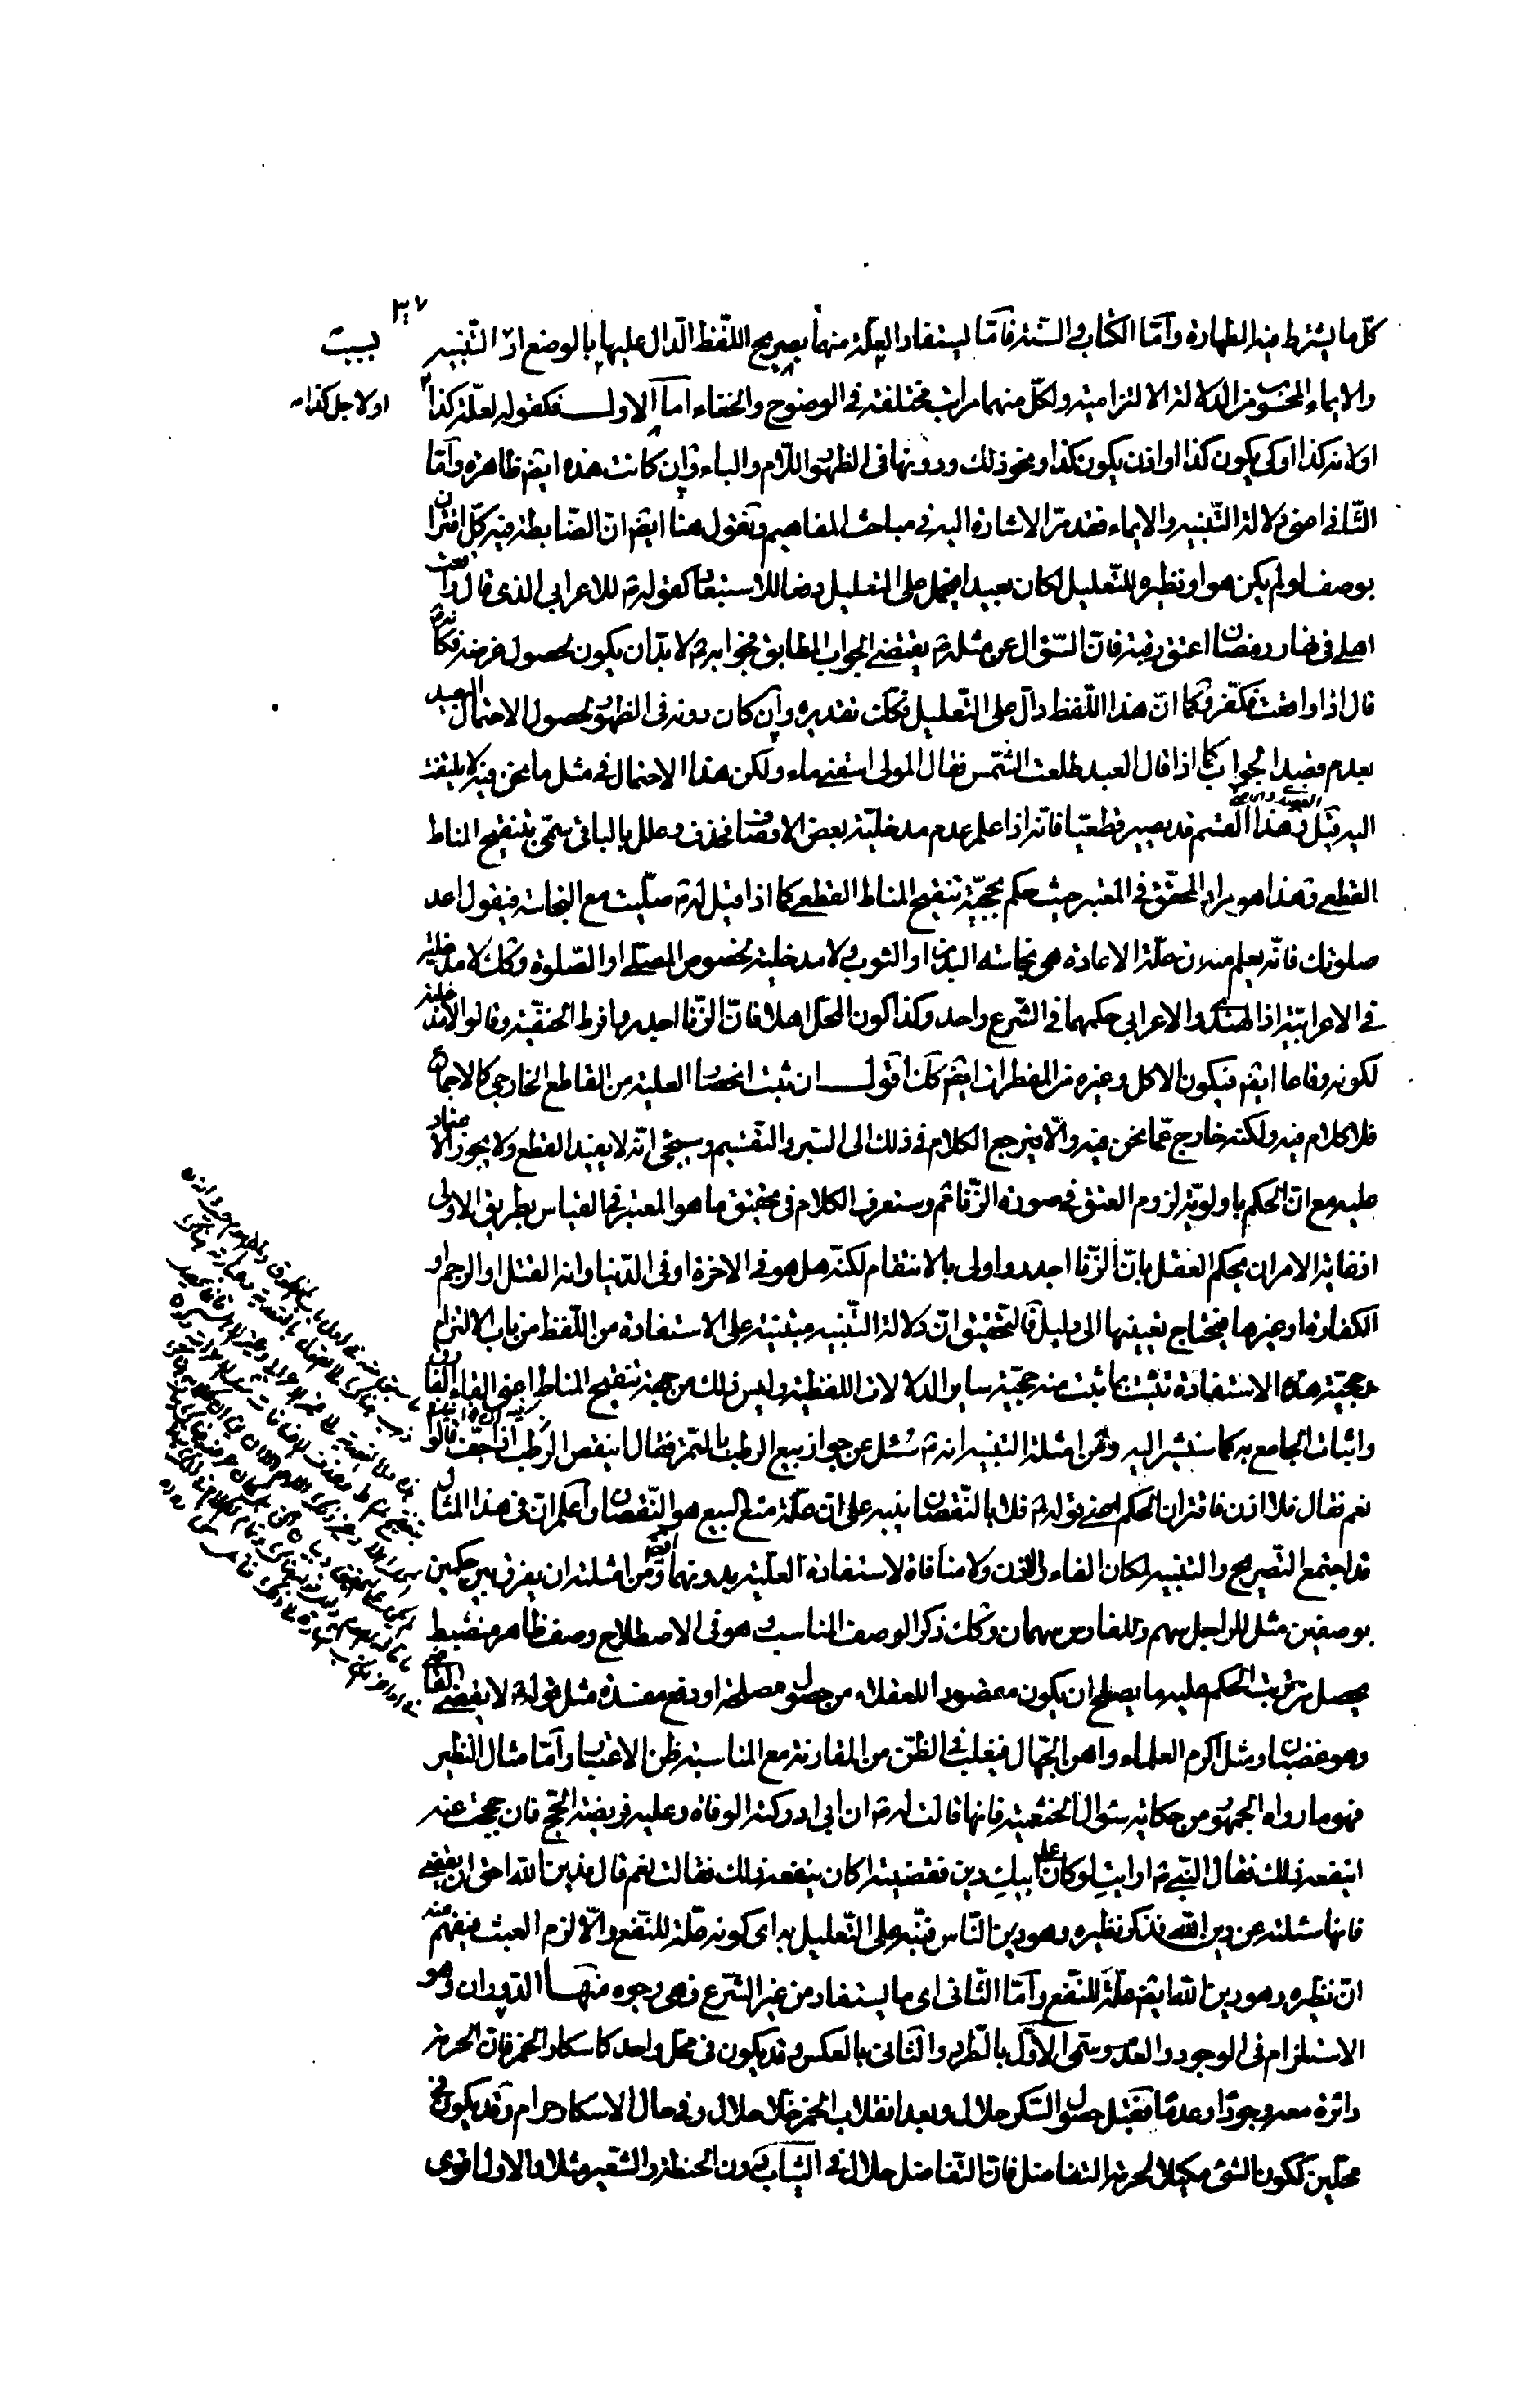 ٣٧
كلّ ما يشترط فيه الطهارة وامّا الكتاب والسّنة فامّا يستفاد العلّة منهما بصريح اللفظ الدّال عليها بالوضع او التّنبيه
بسبب
والايماء المحسوب من الدلالة الالتزامية ولكلّ منهما مراتب مختلفة في الوضوح والخفاء امّا الاول فكقوله لعلّة كذا
او لاجل كذا
او لانه كذا او كي يكون كذا او اذن يكون كذا ونحو ذلك ودونها في الظهور اللام والباء وان كانت هذه ايضا ظاهرة وامّا
الثّاني اعني دلالة التّنبيه والايماء فقد مرّ الاشارة اليه في مباحث المفاهيم ونقول هنا ايضا انّ الضابطة فيه كلّ اقتران
بوصف لو لم يكن هو او نظيره للتّعليل لكان بعيدا فيحمل على التعليل دفعا للاستبعاد كقوله ص للاعرابي الذي قال واقعت
اهلي في نهار رمضان اعتق رقبة فانّ السّؤال عن مثله ص يقتضي الجواب المطابق فجوابه ص لا بدّ ان يكون لحصول غرضه فكانّه
قال اذا واقعت فكفّر فكما انّ هذا اللّفظ دالّ على التّعليل فكك تقديره وان كان دونه في الظهور لحصول الاحتمال البعيد
بعدم قصد الجواب كما اذا قال العبد طلعت الشّمس فقال المولى اسقني ماء ولكن هذا الاحتمال في مثل ما نحن فيه لا يلتفت
اليه قيل وهذا القسم قد يصير قطعيّا فانه اذا علم عدم مدخليّة بعض الاوصاف فحذف وعلل بالباقي سمّي بتنقيح المناط
القطعي وهذا هو مراد المحقّق في المعتبر حيث حكم بحجّية تنقيح المناط القطعي كما اذا قيل له ص صلّيت مع النجاسة فيقول اعد
صلوتك فانّه يعلم منه ان علّة الاعادة هي نجاسة البدن او الثوب ولا مدخلية لخصوص المصلّي او الصّلوة وكك لا مدخلية
في الاعرابيّة اذ الهندي والاعرابي حكمهما في الشّرع واحد وكذا كون المحلّ اهلا فانّ الزّنا اجدر به وافرط الحنفيّة وقالوا لا مدخلية
لكونه وقاعا ايضا فيكون الاكل وغيره من المفطرات ايضا كك اقول ان ثبت انحصار العلية من القاطع الخارجي كالاجماع
فلا كلام فيه ولكنه خارج عمّا نحن فيه والّا فيرجع الكلام في ذلك الى السّبر والتقسيم وسيجئ انّه لا يفيد القطع ولا يجوز الاعتماد
عليه مع انّ الحكم باولويّة لزوم العتق في صورة الزّنا ثم وستعرف الكلام في تحقيق ما هو المعتبر في القياس بطريق الاولى
اذ غاية الامر ان يحكم العقل بانّ الزّنا اجدر واولى بالانتقام لكنّه هل هو في الاخرة او في الدّنيا وانه القتل او الرجم او
الكفارة او غيرها فيحتاج تعيينها الى دليل فالتّحقيق انّ دلالة التّنبيه مبتنية على الاستفادة من اللّفظ من باب الالتزام
وحجيّة هذه الاستفادة تثبت بما ثبت منه حجيّة ساير الدلالات اللفظية وليس ذلك من جهة تنقيح المناط اعني الغاء الفارق
واثبات الجامع به كما سنشير اليه ومن امثلة التنبيه انه ص سُئل عن جواز بيع الرطب بالتمر فقال اينقص الرطب اذا جفّ قالوا
نعم فقال فلا اذن فاقتران الحكم اعني قوله ص فلا بالنّقصان ينبه على ان علّة منع البيع هو النّقصان واعلم انّ في هذا المثال
قد اجتمع التّصريح والتنبيه لمكان الفاء واذن ولا منافاة لاستفادة العلّية بدونهما ايضا ومن امثلته ان يفرق بين حكمين
بوصفين مثل للراجل سهم وللفارس سهمان وكك ذكر الوصف المناسب وهو في الاصطلاح وصف ظاهر منضبط
يحصل من ترتيب الحكم عليه ما يصلح ان يكون مقصودا للعقلاء من حصول مصلحة او دفع مفسدة مثل قوله ص لا يقضي القاضي
وهو غضبان ومثل اكرم العلماء واهن الجهّال فيغلب في الظّن من المقارنة مع المناسبة ظن الاعتبار وامّا مثال النظير
فهو ما رواه الجمهور من حكاية سؤال الخثعمية فانها قالت له ص ان ابي ادركته الوفاة وعليه فريضة الحّج فان حججت عنه
اينفعه ذلك فقال النّبي ص ارايتِ لو كان على ابيكِ دين فقضيته اكان ينفعه ذلك فقالت نعم قال فدين الله احق ان يقضى
فانها سئلته عن دين الله فذكر نظيره وهو دين النّاس فنبّه على التّعليل به اى كونه علّة للنّفع والّا لزم العبث فيفهم منه
انّ نظيره وهو دين الله ايضا علّة للنّفع وامّا الثّاني اى ما يستفاد من غير الشّرع فهى وجوه منها الدّوران وهو
الاستلزام في الوجود والعدم وسمّى الاوّل بالطّرد والثّاني بالعكس وقد يكون في محلّ واحد كاسكار الخمر فانّ الحرمة
دائرة معه وجودًا وعدمًا فقبل حصول السّكر حلال وبعد انقلاب الخمر خلّا حلال وفي حال الاسكار حرام وقد يكون في
محلّين ككون الشئ مكيلا لحرمة التفاضل فانّ التّفاضل حلال في الثّياب دون الحنطة والشّعير مثلا والاول اقوى